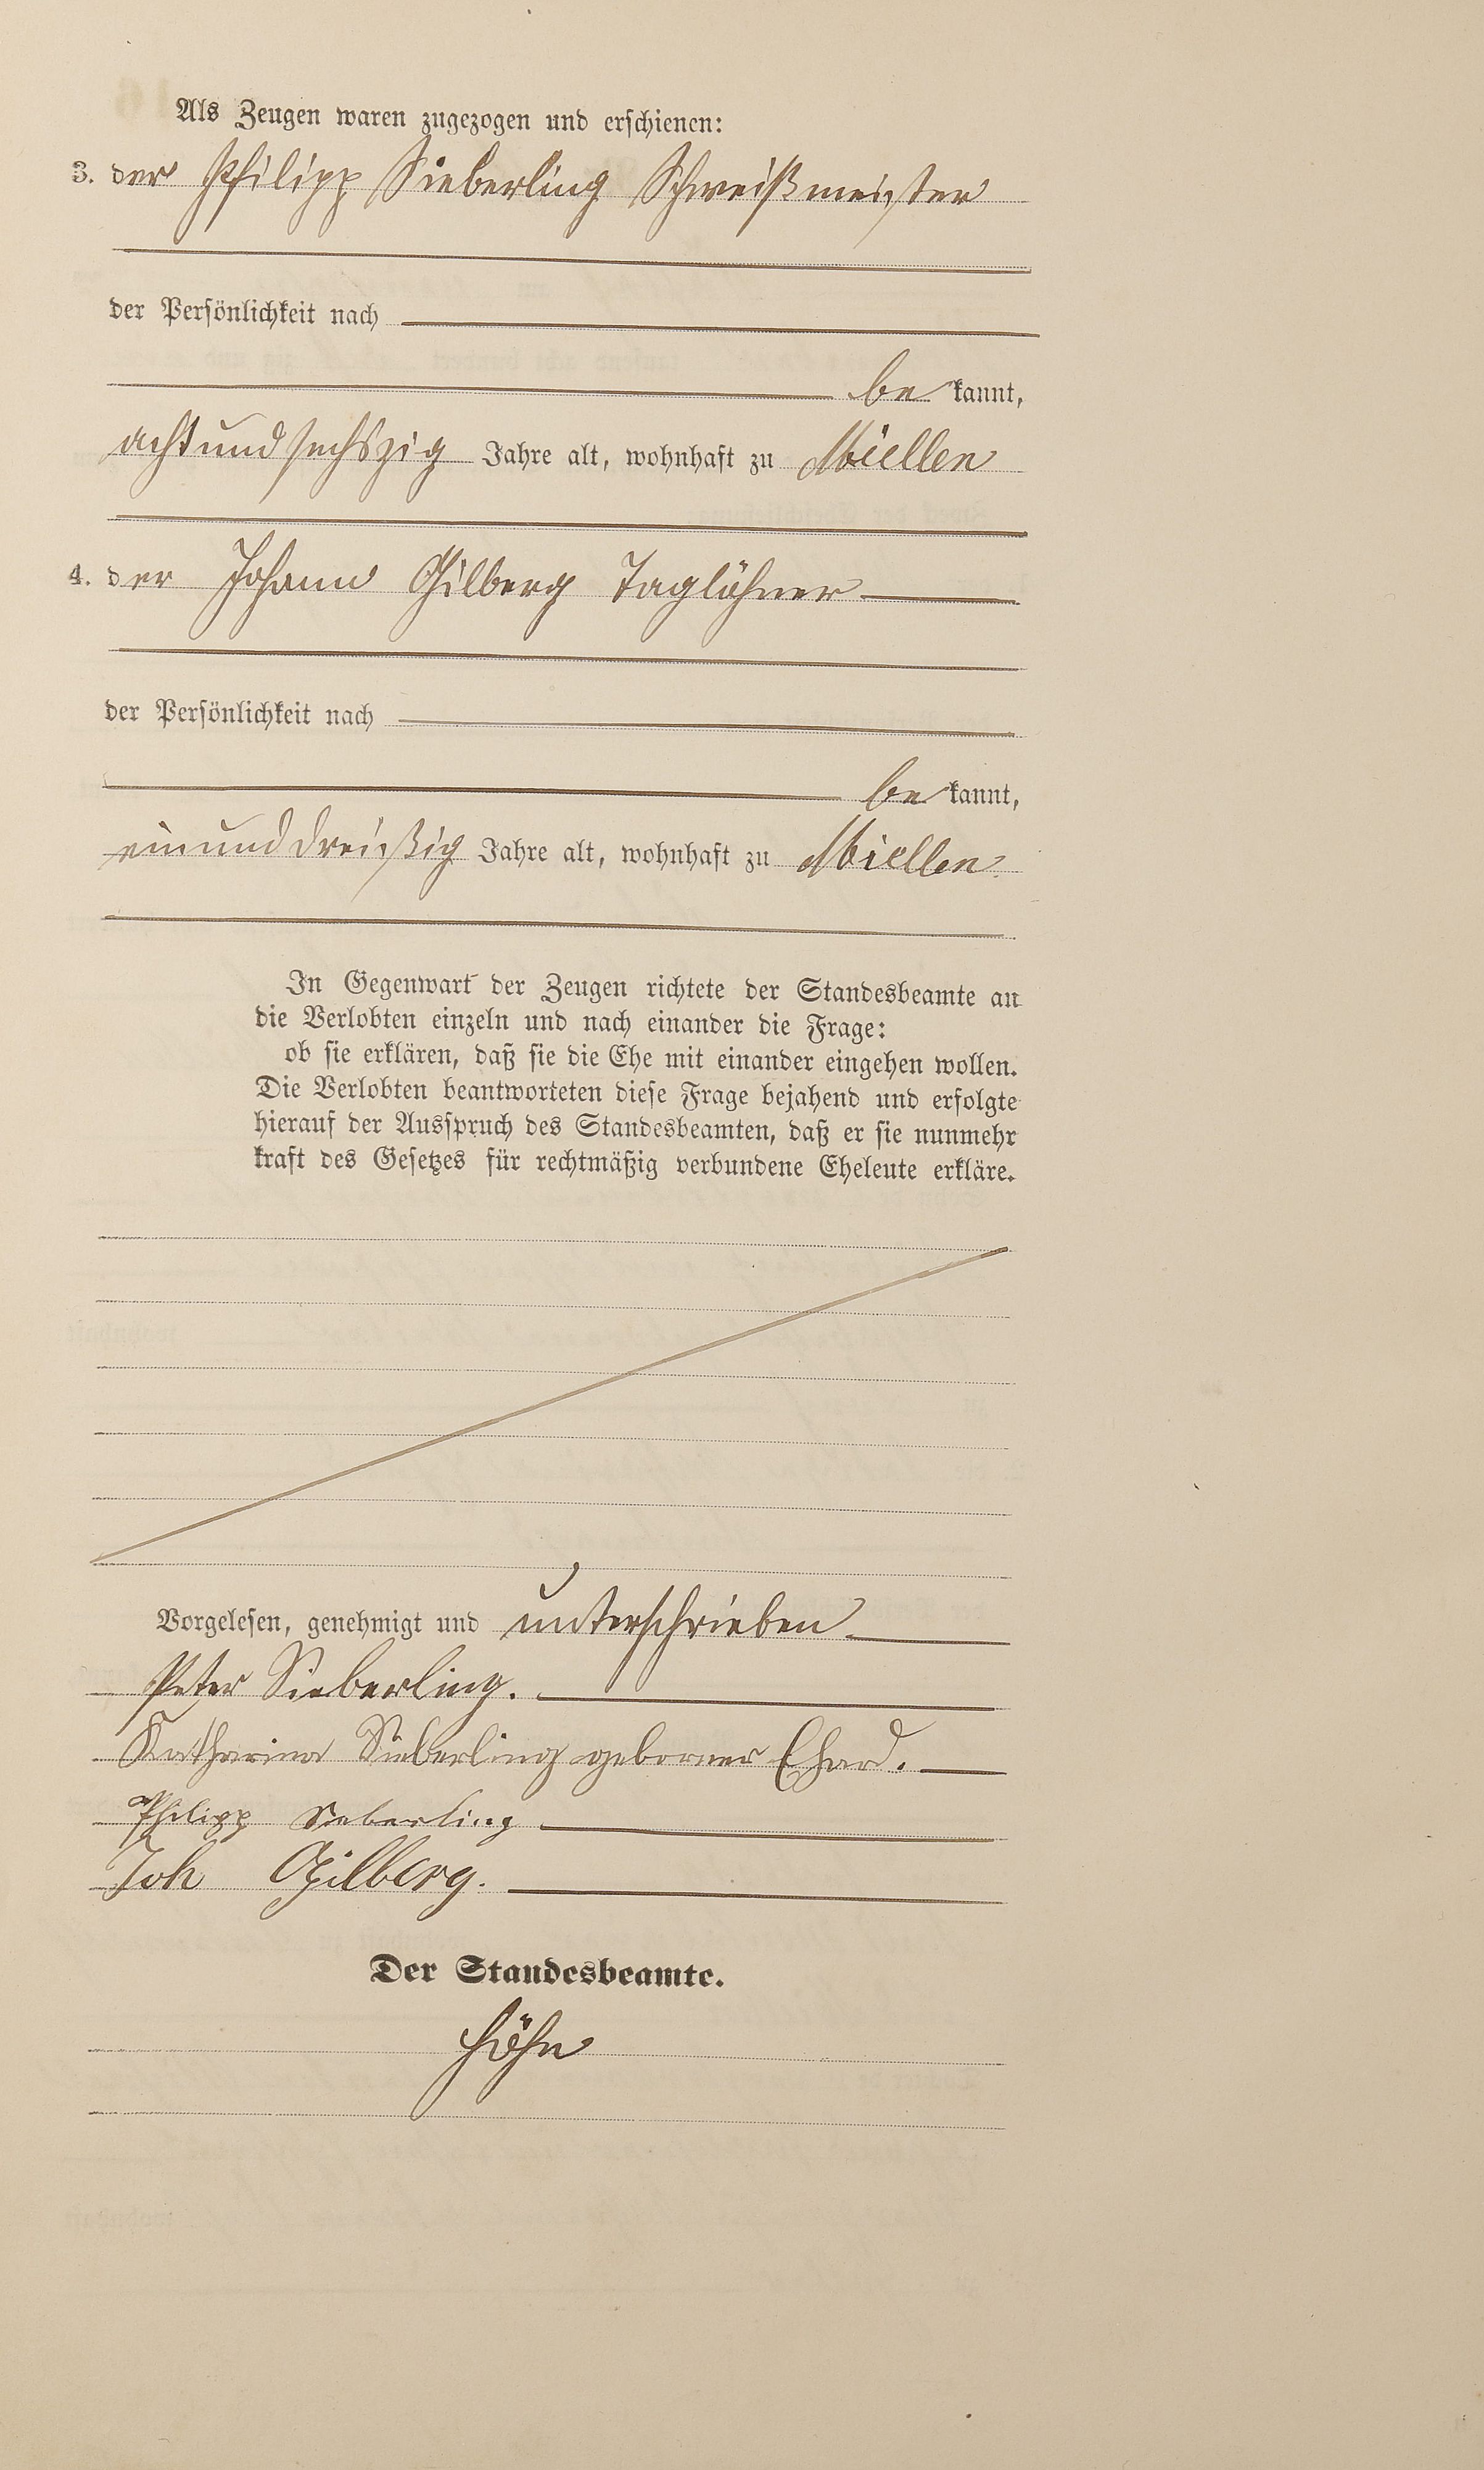 Als Zeugen waren zugezogen und erschienen:
3. der Philipp Sieberling Schweißmeister
der Persönlichkeit nach
be kannt,
acht und sechszig Jahre alt, wohnhaft zu Miellen
4. der Johann Gilberg Taglöhner
der Persönlichkeit nach
be kannt,
ein und dreißig Jahre alt, wohnhaft zu Miellen
In Gegenwart der Zeugen richtete der Standesbeamte an
die Verlobten einzeln und nach einander die Frage:
ob sie erklären, daß sie die Ehe mit einander eingehen wollen.
Die Verlobten beantworteten diese Frage bejahend und erfolgte
hierauf der Ausspruch des Standesbeamten, daß er sie nunmehr
kraft des Gesetzes für rechtmäßig verbundene Eheleute erkläre.
Vorgelesen, genehmigt und unterschrieben
Peter Sieberling.
Katharina Sieberling geborner Ehard.
Philipp Sieberling
Joh Gilberg.
Der Standesbeamte.
Höhn